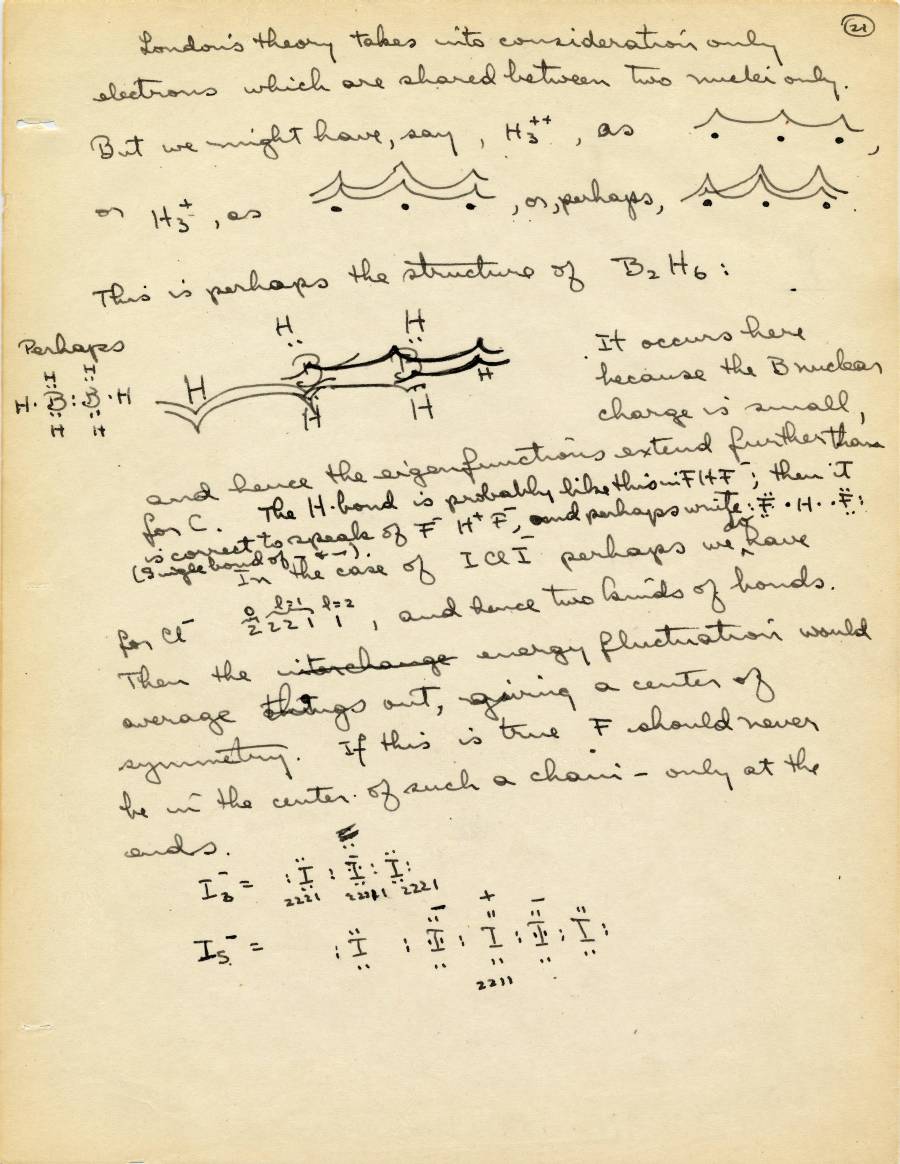 21
London's theory takes into consideration only
electrons which are shared between two nuclei only.
But we might have, say, H₃⁺⁺, as ,
or H₃⁺, as , or, perhaps, .
This is perhaps the structure of B₂H₆:
Perhaps
H H
H H
H· B : B ·H
H H
H H
B B
H H
H H
It occurs here
because the B nuclear
charge is small,
and hence the eigenfunctions extend further than
for C. The H-bond is probably like this in FHF⁻; then it
is correct to speak of F⁻ H⁺ F⁻, and perhaps write :F̈ · H · · F̈:
(Single bond of I⁺⁻).
In the case of I Cl I⁻ perhaps we do have
0 l=1 l=2
for Cl⁻ 2 2 2 1 1, and hence two kinds of bonds.
Then the interchange energy fluctuation would
average things out, giving a center of
symmetry. If this is true F should never
be in the center of such a chain – only at the
ends.
I₃⁻ = :I : I⁻ : I:
2221 22211 2221
I₅⁻ = :I : I⁻ : I⁺ : I⁻ : I:
2211